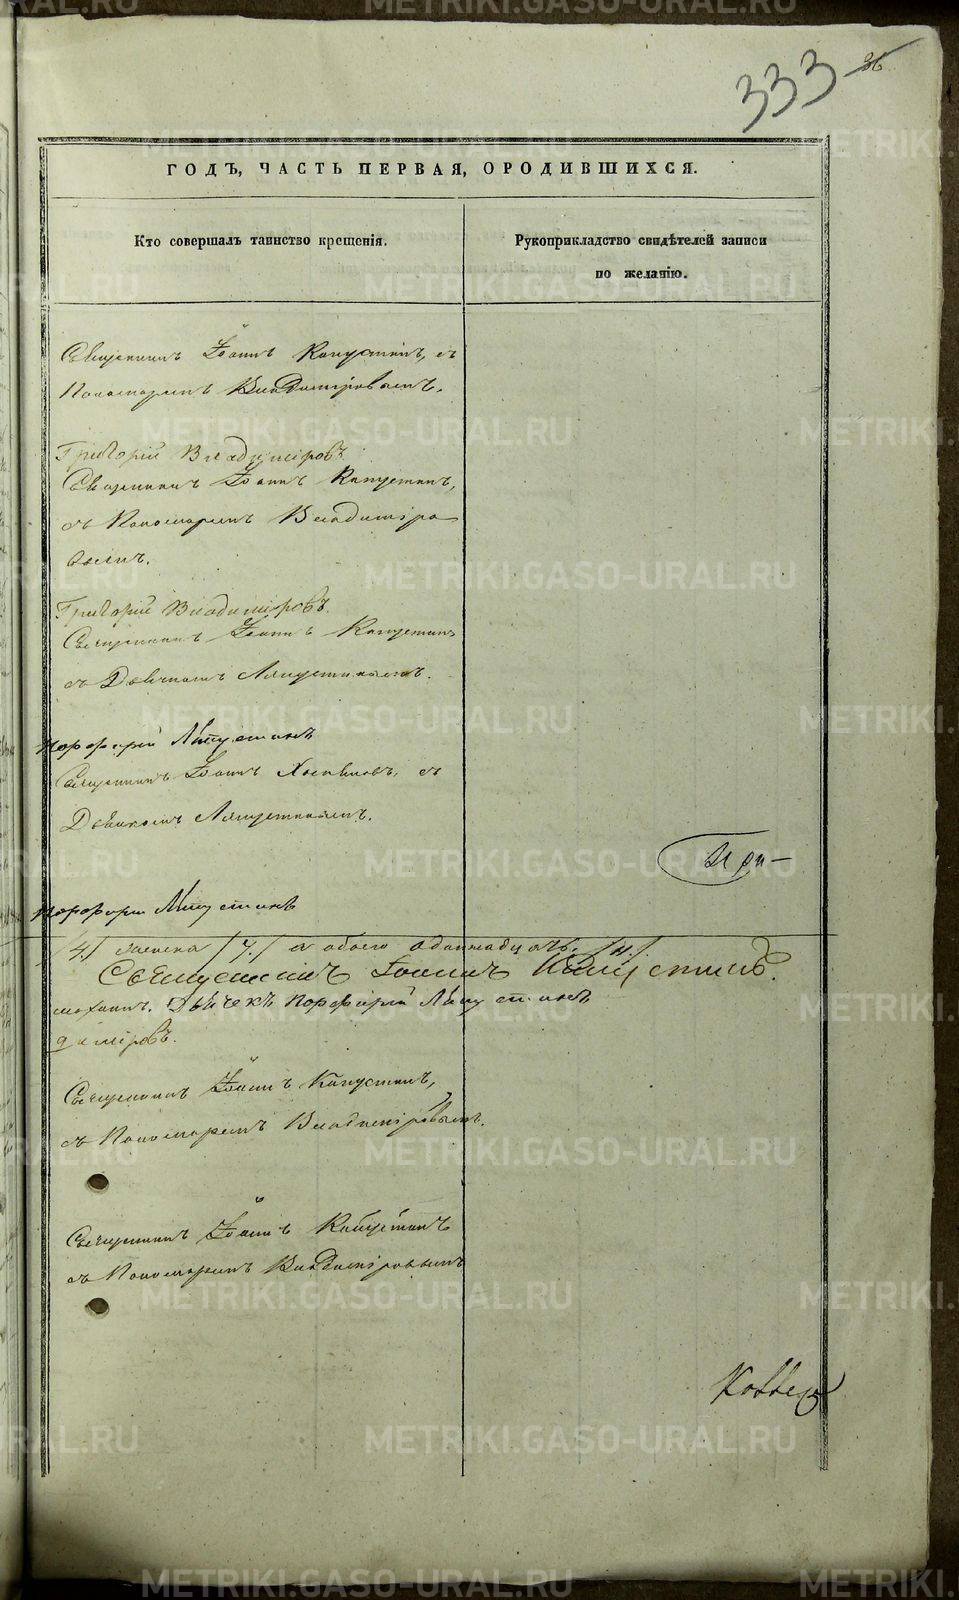 333
36
ГОДЪ, ЧАСТЬ ПЕРВАЯ, О РОДИВШИХСЯ.
Кто совершалъ таинство крещенія.
Рукоприкладство свидѣтелей записи
по желанію.
Священникъ Іоаннъ Капустинъ, съ
Пономаремъ Владиміровымъ.
Григорій Владиміровъ
Священникъ Іоаннъ Капустинъ,
съ Пономаремъ Владиміро
вымъ.
Григорій Владиміровъ.
Священникъ Іоаннъ Капустинъ
съ Дьячкомъ Ляпустинымъ.
Порфирій Ляпустинъ
Священникъ Іоаннъ Хлыновъ, съ
Дьячкомъ Ляпустинымъ.
Порфирій Ляпустинъ
/4./ женска /7./ а обоего одиннадцать /11./
Священникъ Іоаннъ Капустинъ.
Дьячекъ Порфирій Ляпустинъ
диміровъ.
Священникъ Іоаннъ Капустинъ,
съ Пономаремъ Владиміровымъ.
Священникъ Іоаннъ Капустинъ
съ Пономаремъ Владиміровымъ
METRIKI.GASO-URAL.RU